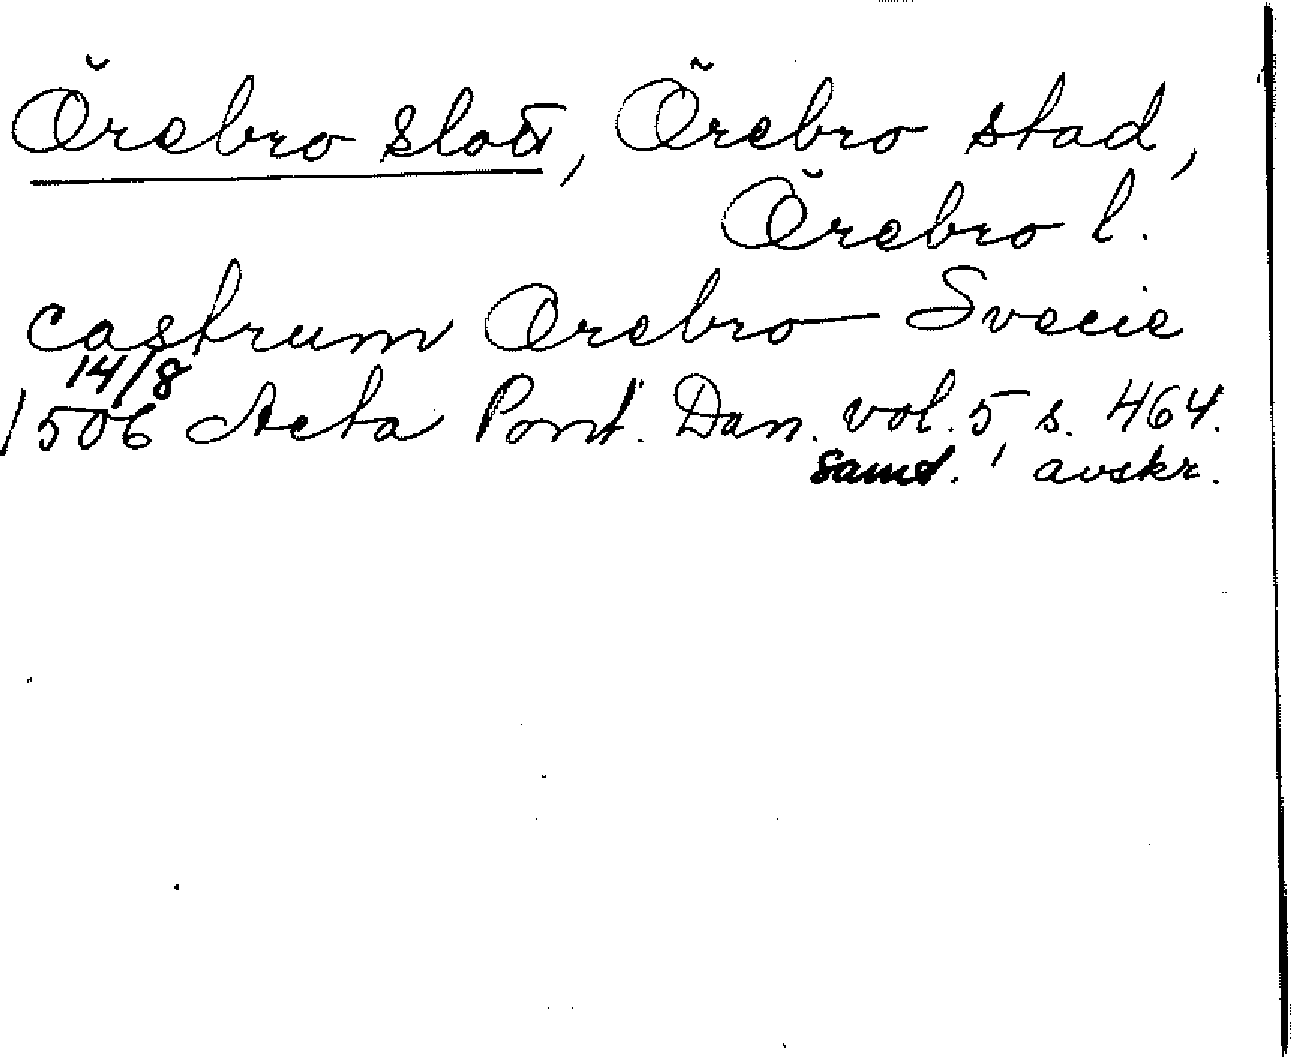 Örebro slott, Örebro stad,
Örebro l.
castrum Orebro Svecie
14/8
1506 Acta Pont. Dan. vol. 5, s. 464.
samt. avskr.